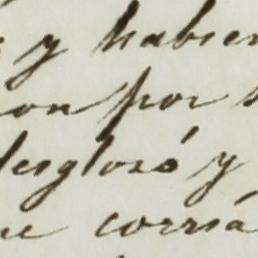 y habien
on por
desglosó y
ue corriá